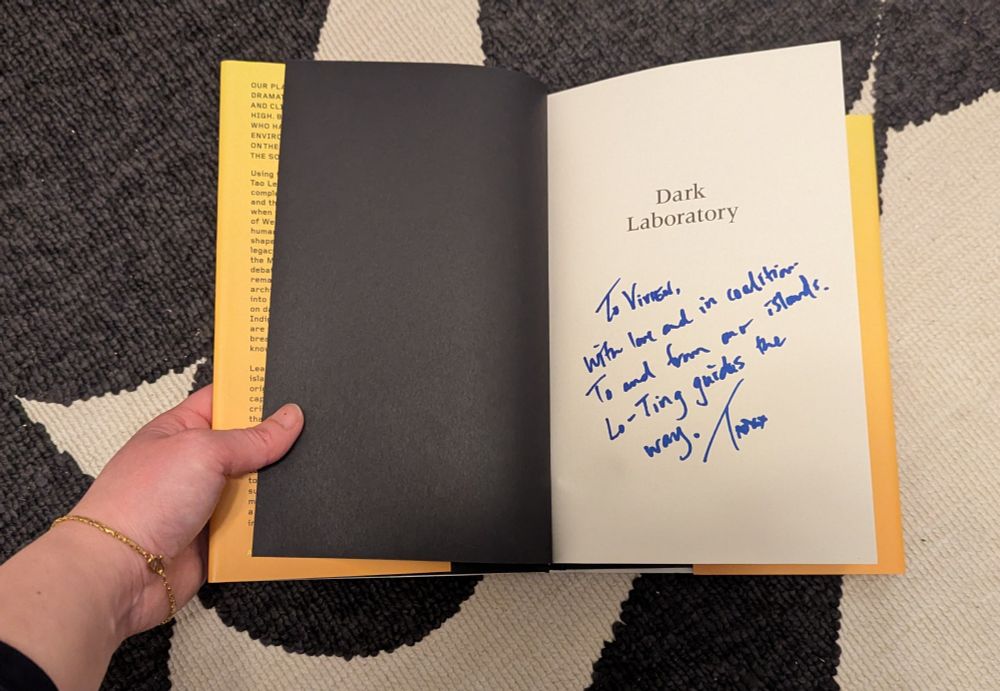 OUR PLA
DRAMAT
AND CLI
HIGH. B
WHO HA
ENVIRO
ON THE
THE SO
Using
Tao Le
comple
and th
when
of We
human
shape
legac
the M
debat
rema
arch
into
on d
Indi
are
brea
kno
Lea
isla
orig
cap
crit
the
to
su
m
a
in
Dark
Laboratory
To Vivien,
With love and in coalition
To and from our islands.
Lo-Ting guides the
way.